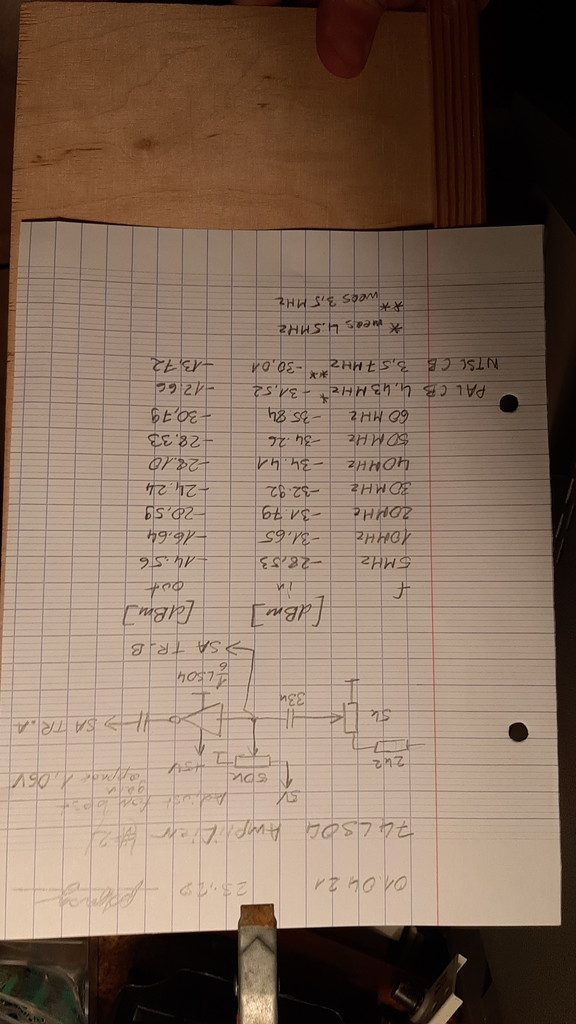 01.04 21 23:29
74LS04 Amplifier (#2)
Adjust for best
gain
approx 1,06V
5V
50k
+5V
2k2
5k
33u
SA TR.A
1/6 LS04
SA TR.B
[dBm] [dBm]
f in out
5MHz -28,53 -14.56
10MHz -31,65 -16,64
20MHz -31.79 -20,59
30MHz -32.92 -24.24
40MHz -34.41 -28.10
50MHz -34.26 -28.33
60MHz -35.84 -30,79
PAL CB 4,43MHz* -31,52 -12.66
NTSC CB 3,57MHz** -30,01 -13,72
* wees 4.5MHz
** wees 3,5MHz